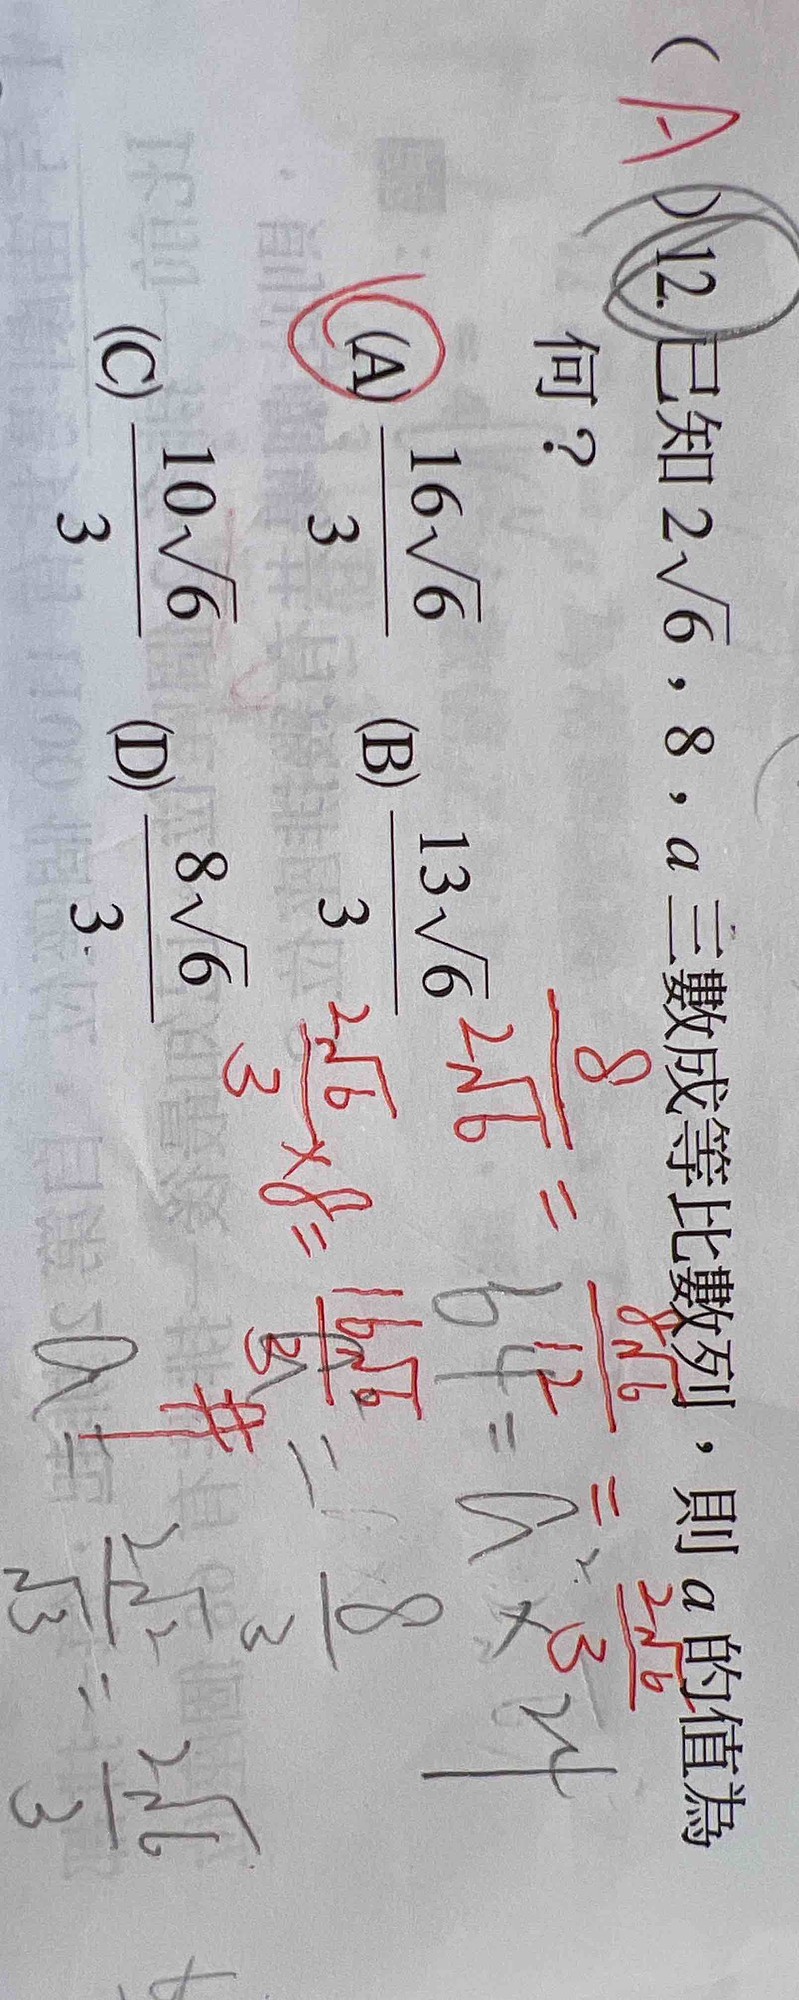 ( A ) 12. 已知 2√6，8，a 三數成等比數列，則 a 的值為
何？
(A) 16√6/3 (B) 13√6/3
(C) 10√6/3 (D) 8√6/3
8/2√6 = 8√6/12 = 2√6/3
2√6/3 × 8 = 16√6/3 #
64 = a² × 24
a² = 8/3
a = 2√2/√3 = 2√6/3